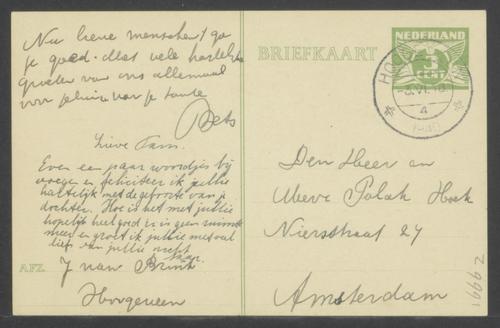 Nu lieve menschen! ga
je goed. Met vele hartelijke
groeten van ons allemaal
voor jelui van je tante
Bets
Lieve Fam.
Even een paar woordjes bij
voegen en feliciteer ik jullie
hartelijk met de geboorte van je
dochter. Hoe is het met jullie
hopelijk heel goed er is geen ruimte
meer en groet ik jullie met al
lief van jullie
AFZ. J van Brink
Hoogeveen
BRIEFKAART
NEDERLAND
3
CENT
VI
4
Den Heer en
Mevr Polak Hoek
Niersstraat 27
Amsterdam
19992